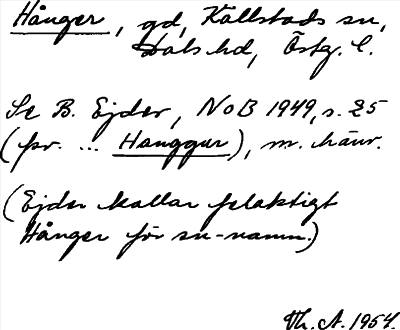 Hånger, gd, Källstads sn,
Dals hd, Östg. l.
Se B. Ejder, NoB 1949, s. 25
(fr. ... Hanggur), m. hänv.
(Ejder kallar felaktigt
Hånger för sn-namn.)
Th. A. 1954.